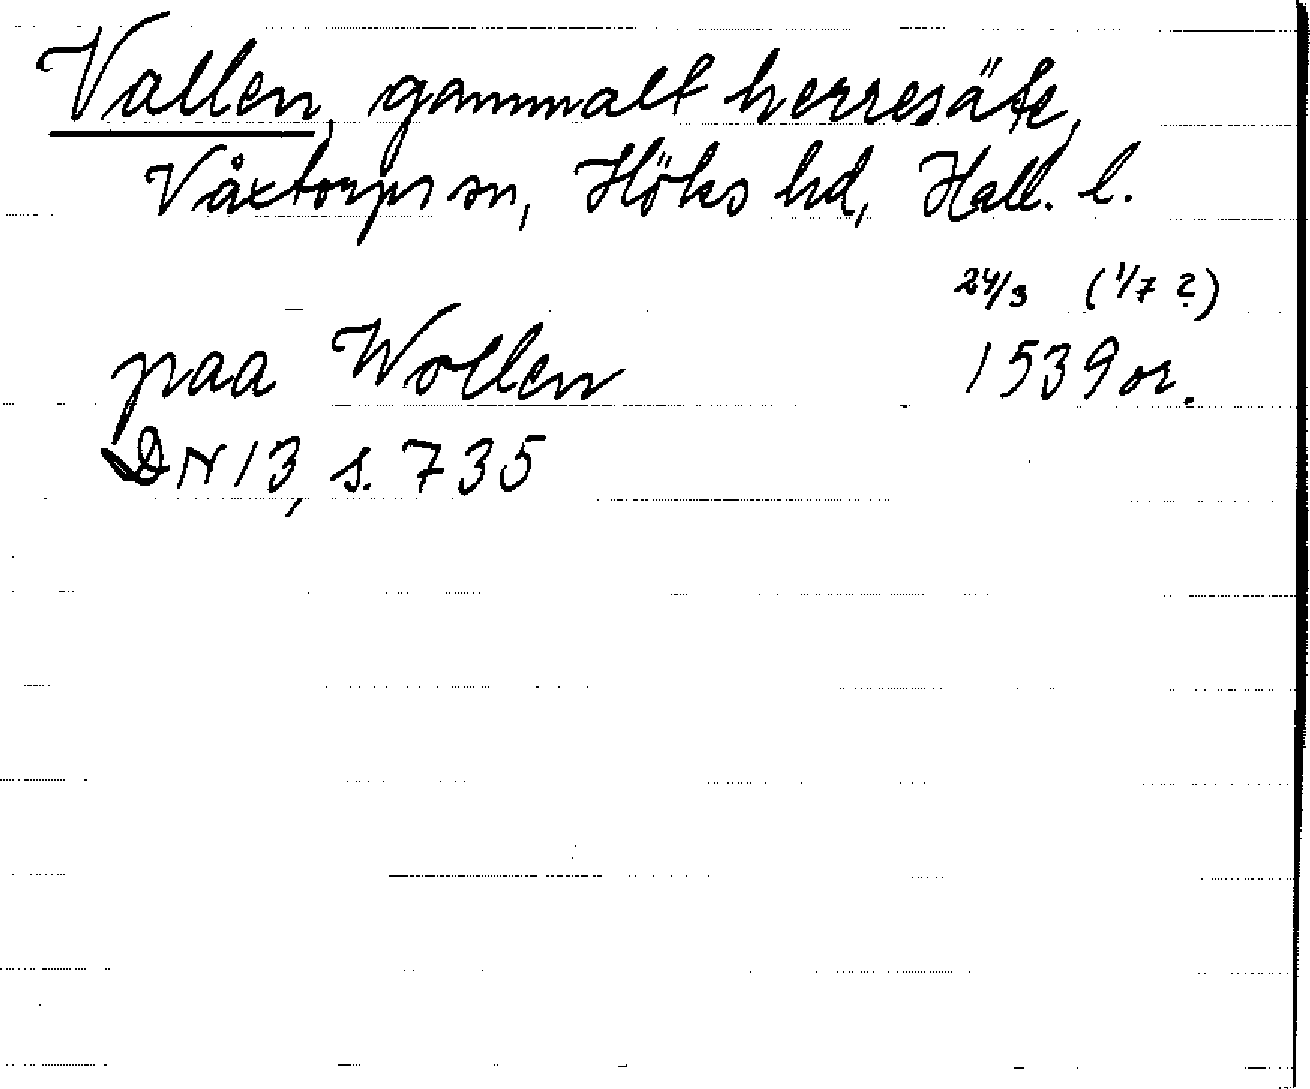 Vallen, gammalt herresäte,
Våxtorps sn, Höks hd, Hall. l.
24/3 (1/7 ?)
paa Wollen 1539 or.
DN 13, s. 735